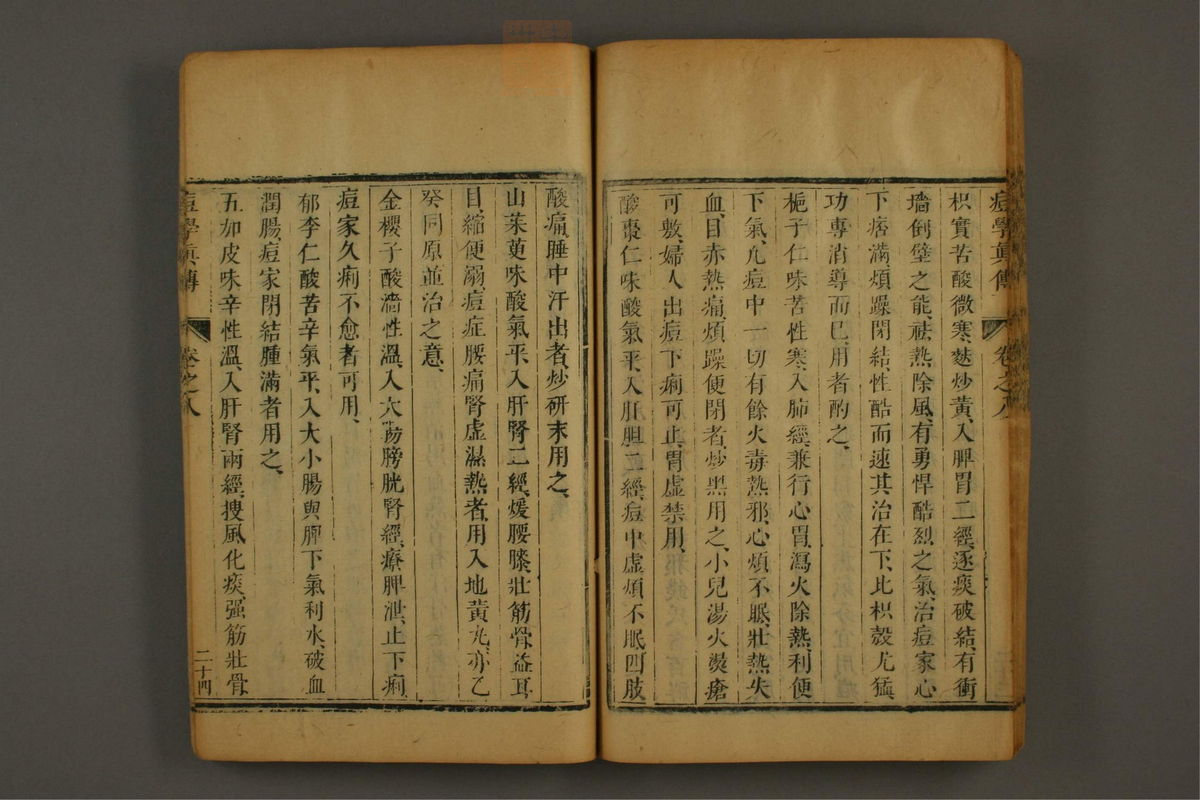 痘學眞傳 卷之八
枳實苦酸微寒、麩炒黃、入脾胃二經、逐痰破結、有衝
墻倒壁之能、祛熱除風、有勇悍酷烈之氣、治痘家心
下痞滿煩躁閉結、性酷而速、其治在下、比枳殼尤猛、
功專消導而已、用者酌之、
梔子仁味苦性寒、入肺經、兼行心胃、瀉火除熱、利便
下氣、凡痘中一切有餘火毒熱邪、心煩不眠、壯熱失
血、目赤熱痛、煩躁便閉者、炒黑用之、小兒湯火燙瘡
可敷、婦人出痘下痢可止、胃虛禁用、
酸棗仁味酸氣平、入肝胆二經、痘中虛煩不眠、四肢
酸痛、睡中汗出者、炒研末用之、
山茱萸味酸氣平、入肝腎二經、煖腰膝、壯筋骨、益耳
目、縮便溺、痘症腰痛腎虛濕熱者、用入地黃丸、亦乙
癸同原並治之意、
金櫻子酸濇性溫、入大腸膀胱腎經、療脾泄、止下痢、
痘家久痢不愈者可用、
郁李仁酸苦辛氣平、入大小腸與脾、下氣利水、破血
潤腸、痘家閉結腫滿者用之、
五加皮味辛性溫、入肝腎兩經、搜風化痰、强筋壯骨、
痘學眞傳 卷之八 二十四